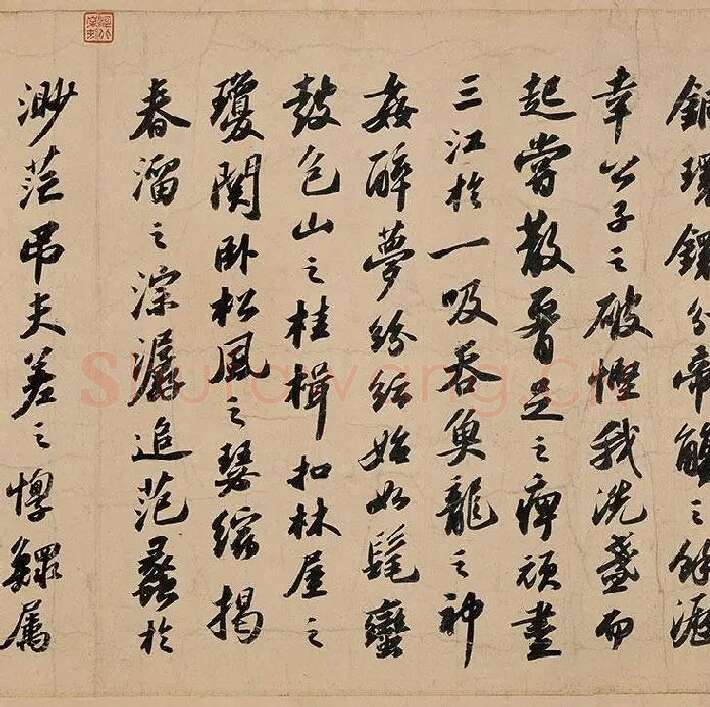 銅環鐶分帝觴之餘瀝
幸公子之破慳我洗盞而
起嘗散腰足之痺頑盡
三江於一吸吞魚龍之神
姦醉夢紛紜始如髦蠻
鼓包山之桂楫扣林屋之
瓊関臥松風之瑟縮揭
春溜之淙潺追范蠡於
渺茫吊夫差之惸鰥屬
shufawang.cn